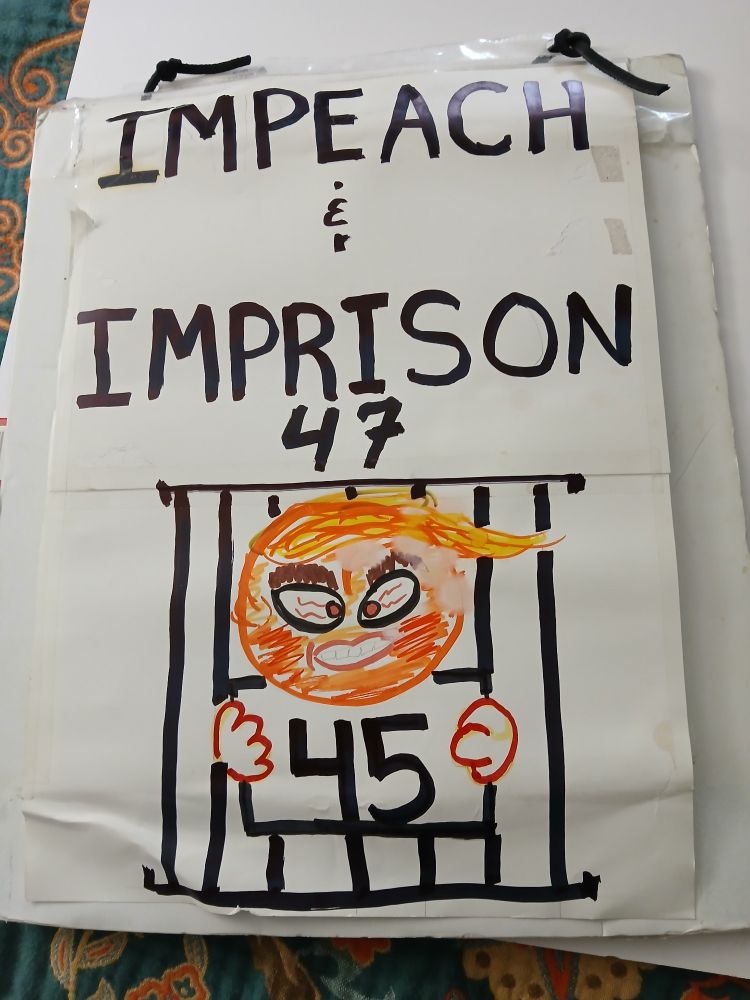 IMPEACH
&
IMPRISON
47
45